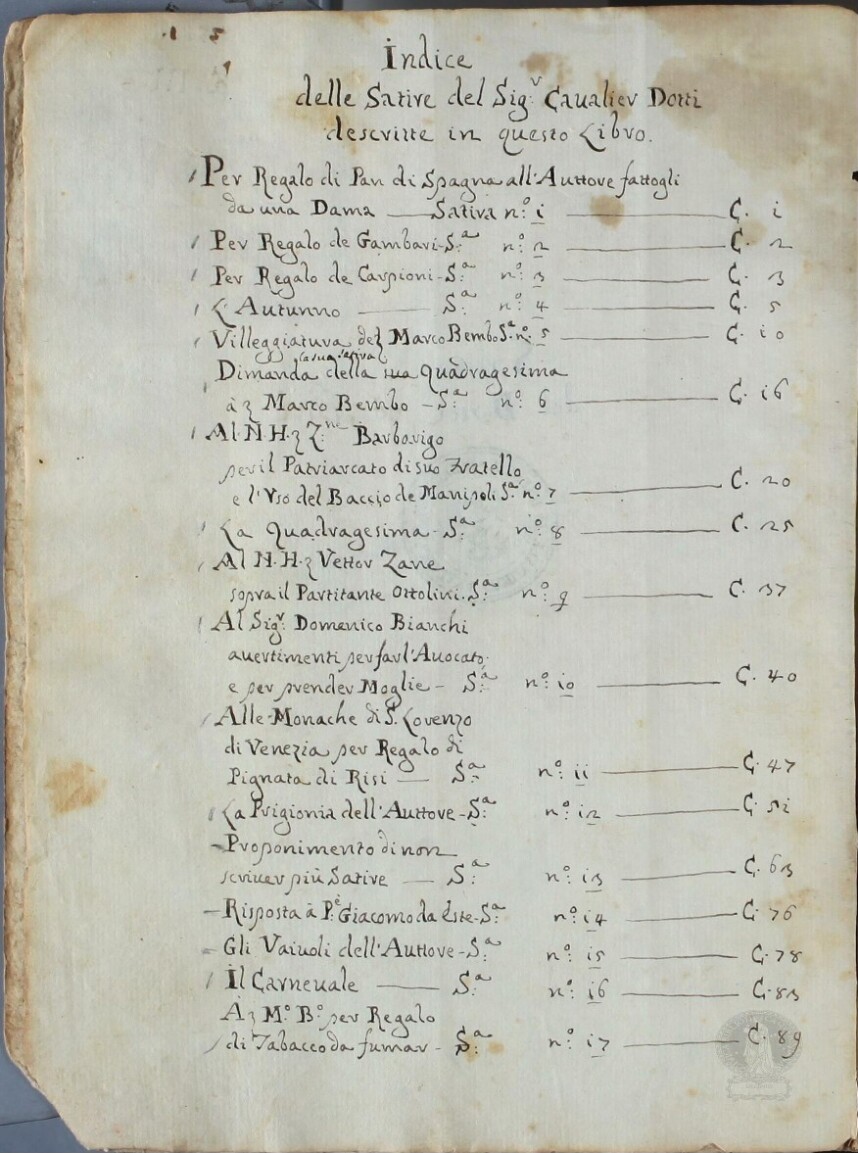 Indice
delle Satire del Sig.r Caualier Dotti
descritte in questo Libro.
Per Regalo di Pan di Spagna all'Auttore fattogli
da una Dama — Satira n.o i — C. i
Per Regalo de Gambari - S.a n.o 2 — C. 2
Per Regalo de Carpioni - S.a n.o 3 — C. 3
L'Autunno — S.a n.o 4 — C. 5
Villeggiatura del Marco Bembo S.a n.o 5 — C. i0
la sua satira
Dimanda della sua Quadragesima
à Marco Bembo - S.a n.o 6 — C. i6
Al N.H. Z.ne Barbarigo
per il Patriarcato di suo Fratello
e l'Vso del Baccio de Manipoli S.a n.o 7 — C. 20
La Quadragesima - S.a n.o 8 — C. 25
Al N.H. Vettor Zane
sopra il Partitante Ottolini. S.a n.o 9 — C. 37
Al Sig.r Domenico Bianchi
auertimenti per far l'Auocato
e per prender Moglie - S.a n.o i0 — C. 40
Alle Monache di S. Lorenzo
di Venezia per Regalo di
Pignata di Risi — S.a n.o ii — C. 47
La Prigionia dell'Auttore - S.a n.o i2 — C. 5i
Proponimento di non
scriuer più Satire — S.a n.o i3 — C. 63
Risposta à P.e Giacomo da Este - S.a n.o i4 — C. 76
Gli Vaiuoli dell'Auttore - S.a n.o i5 — C. 78
Il Carneuale — S.a n.o i6 — C. 83
A M.o B.o per Regalo
di Tabacco da fumar - S.a n.o i7 — C. 89